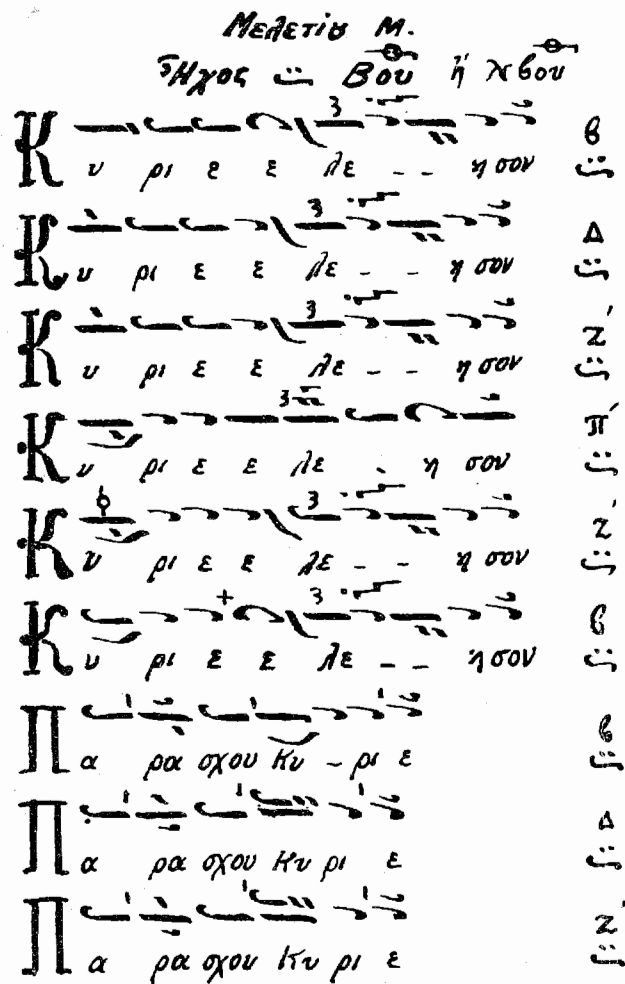 Μελετίου Μ.
Ἦχος Βου ἤ λ βου
Κυ ρι ε ε λε - - η σον β
Κυ ρι ε ε λε - - η σον Δ
Κυ ρι ε ε λε - - η σον Ζ΄
Κυ ρι ε ε λε - η σον Π΄
Κυ ρι ε ε λε - - η σον Ζ΄
Κυ ρι ε ε λε - - η σον β
Πα ρα σχου Κυ - ρι ε β
Πα ρα σχου Κυ ρι ε Δ
Πα ρα σχου Κυ ρι ε Ζ΄